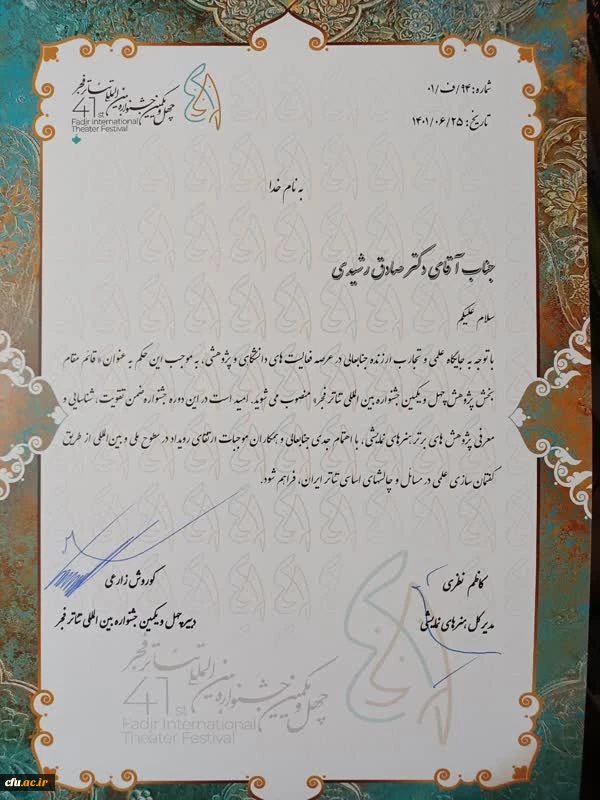 چهل و یکمین جشنواره بین‌المللی تئاتر فجر
41st
Fadjr International
Theater Festival
شماره: ۹۴/ف/۰۱
تاریخ: ۱۴۰۱/۰۶/۲۵
به نام خدا
جناب آقای دکتر صادق رشیدی
سلام علیکم
با توجه به جایگاه علمی و تجارب ارزنده جنابعالی در عرصه فعالیت های دانشگاهی و پژوهشی، به موجب این حکم به عنوان «قائم مقام
بخش پژوهش چهل و یکمین جشنواره بین المللی تئاتر فجر» منصوب می شوید. امید است در این دوره جشنواره ضمن تقویت، شناسایی و
معرفی پژوهش های برتر هنرهای نمایشی، با اهتمام جدی جنابعالی و همکاران موجبات ارتقای رویداد در سطوح ملی و بین‌المللی از طریق
گفتمان سازی علمی در مسائل و چالشهای اساسی تئاتر ایران، فراهم شود.
کاظم نظری
مدیرکل هنرهای نمایشی
کوروش زارعی
دبیر چهل و یکمین جشنواره بین المللی تئاتر فجر
چهل و یکمین جشنواره بین‌المللی تئاتر فجر
41st
Fadjr International
Theater Festival
cfu.ac.ir